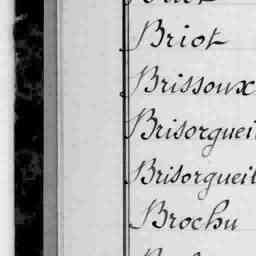 Briot
Brissoux
Brisorgueil
Brisorgueil
Brochu